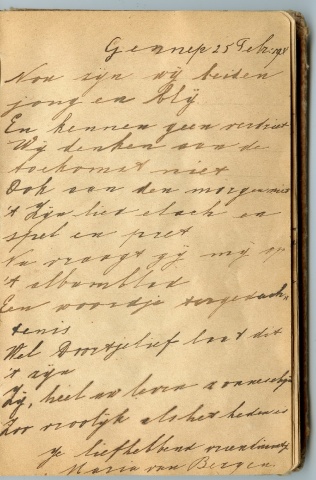 Gennep 25 Febr.
Nou zijn wij beiden
jong en blij
En kennen geen verdriet
Wij denken aan de
toekomst niet
Ook aan den morgen niet
't Zijn lied elach en
spel en pret
Nu vraagt gij mij op
't albumblad
Een woordje ter gedach-
tenis
Wel Doortjelief laat dit
't zijn
Zij, heel uw leven zonneschijn
Zoo vroolijk als het heden is
je liefhebbend vriendinnetje
Maria van Bergen